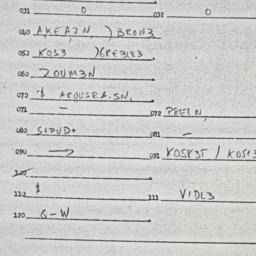 031 0 032 0
040 AKEAZN, ) BRON3
050 KOS3 )GREBLE3
060 ZOUM3N
070 $ APOUSRA.SN,
071 – 072 PREIN,
080 SLDUD+
081 –
090 → 091 KOSP3T / KOST3
100
110 $ 111 VIDL3
120 G-W